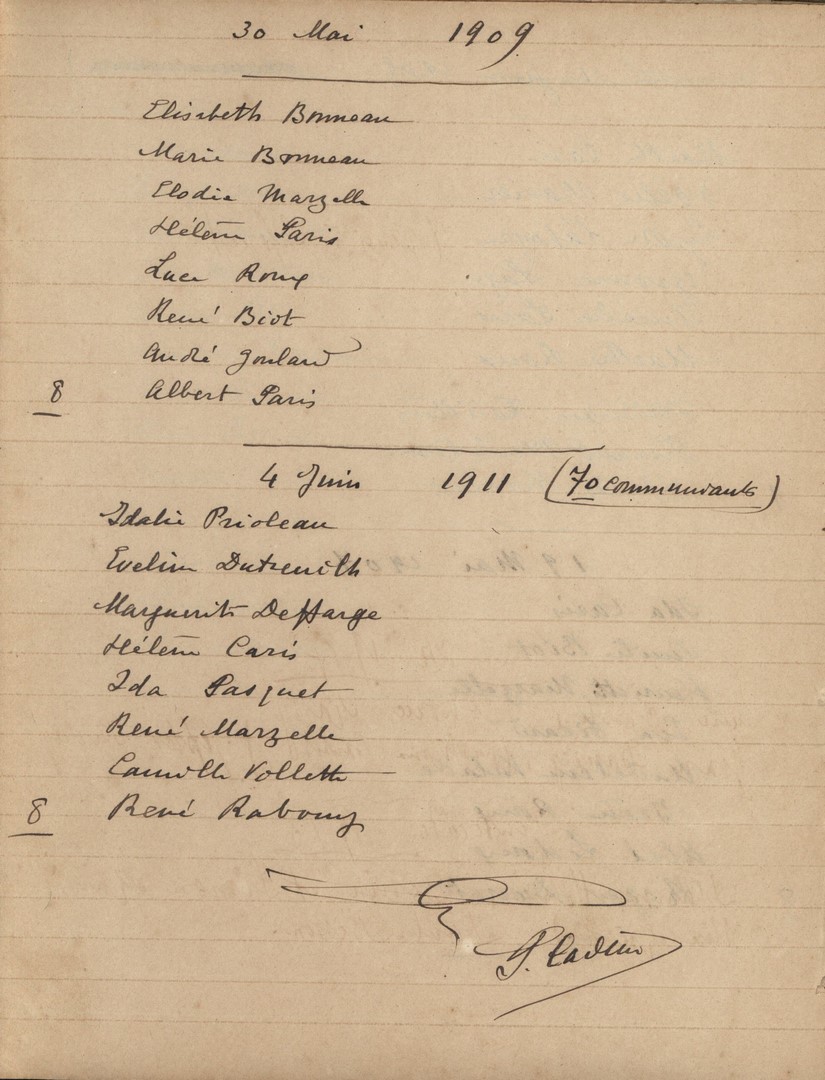 30 Mai 1909
Elisabeth Bonneau
Marie Bonneau
Elodie Marzelle
Hélène Paris
Luce Roux
René Biot
André Goulard
8 Albert Paris
4 Juin 1911 (70 communiants)
Idalie Prioleau
Eveline Dutreuilh
Marguerite Deffarge
Hélène Caris
Ida Pasquet
René Marzelle
Camille Vollette
8 René Rabouy